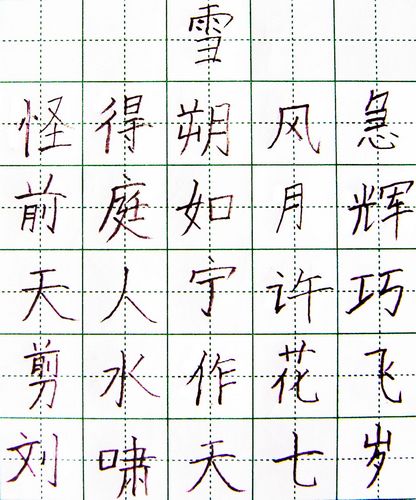 雪
怪得朔风急
前庭如月辉
天人宁许巧
剪水作花飞
刘啸天七岁